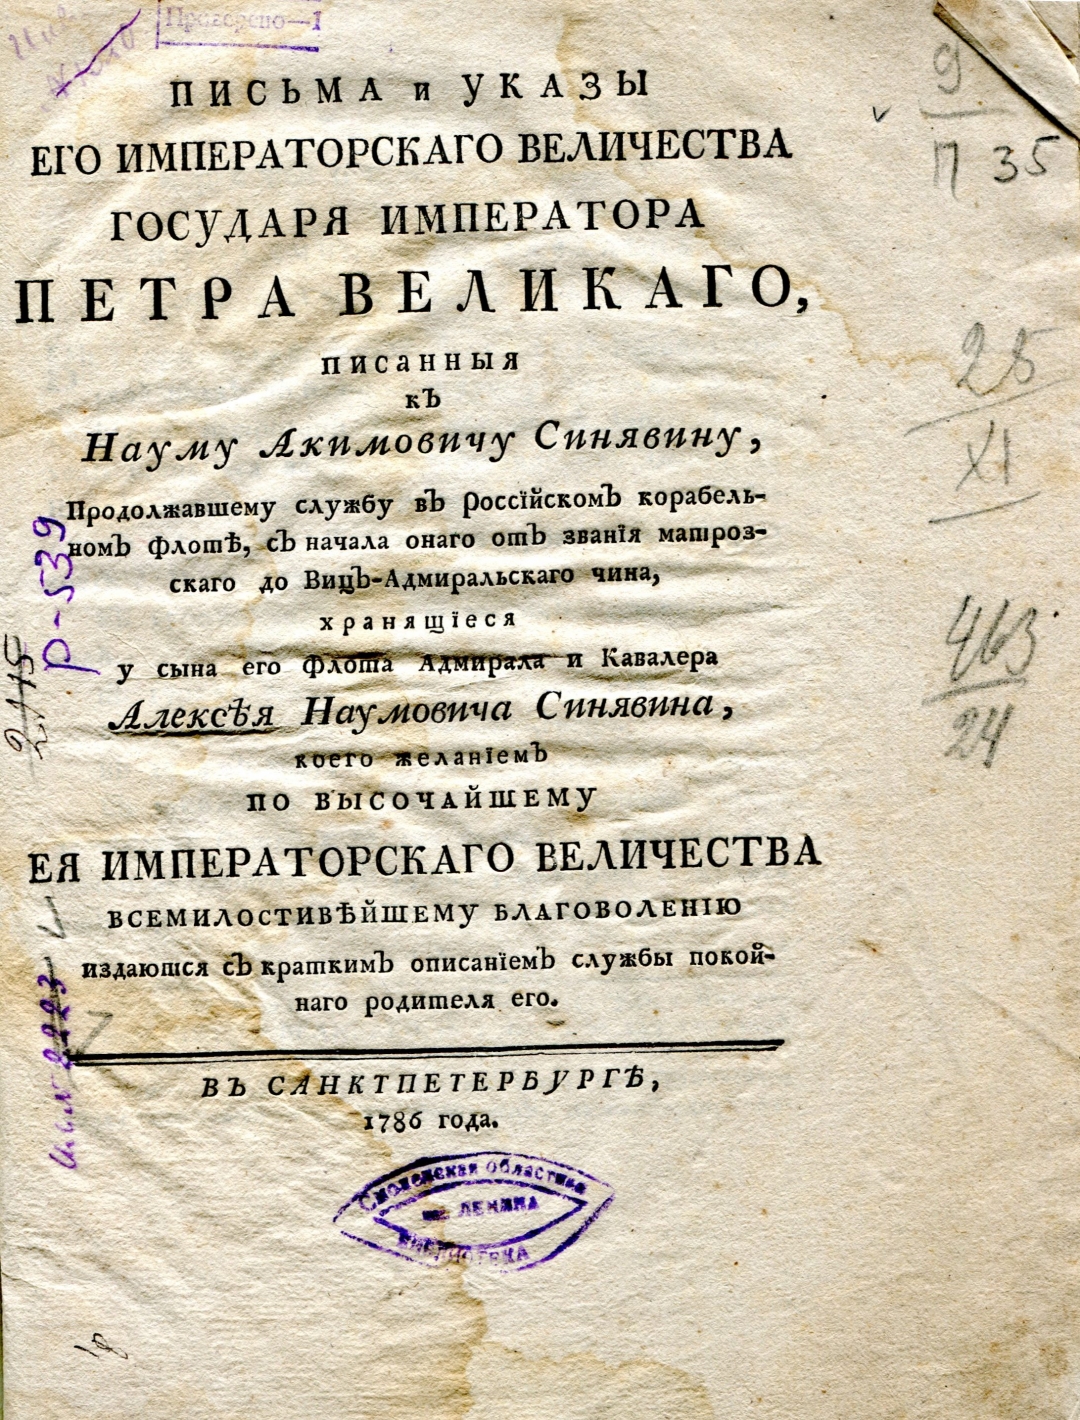 Проверено—1
ПИСЬМА и УКАЗЫ
ЕГО ИМПЕРАТОРСКАГО ВЕЛИЧЕСТВА
ГОСУДАРЯ ИМПЕРАТОРА
ПЕТРА ВЕЛИКАГО,
писанныя
къ
Науму Акимовичу Синявину,
Продолжавшему службу въ Россїйскомъ корабель-
номъ флотѣ, съ начала онаго отъ званїя матроз-
скаго до Вицъ-Адмиральскаго чина,
хранящїеся
у сына его Флота Адмирала и Кавалера
Алексѣя Наумовича Синявина,
коего желанїемъ
ПО ВЫСОЧАЙШЕМУ
ЕЯ ИМПЕРАТОРСКАГО ВЕЛИЧЕСТВА
ВСЕМИЛОСТИВѢЙШЕМУ БЛАГОВОЛЕНІЮ
издаются съ краткимъ описанїемъ службы покой-
наго родителя его.
ВЪ САНКТПЕТЕРБУРГѢ,
1786 года.
Смоленская областная
им. ЛЕНИНА
БИБЛИОТЕКА
9
П 35
25
XI
463
24
Р-539
2115
18